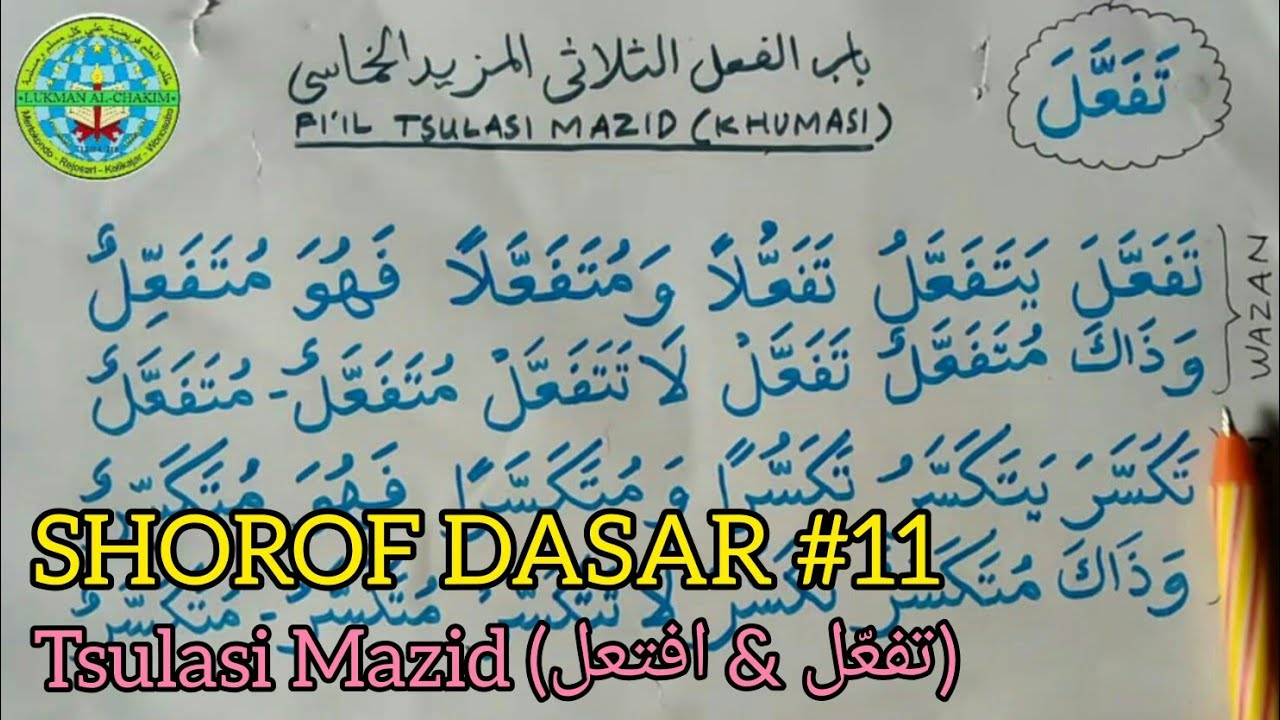 طلب العلم فريضة على كل مسلم ومسلمة
•LUKMAN AL-CHAKIM•
Mertosondo - Rejosari - Kalikajar - Wonosobo
باب الفعل الثلاثى المزيد الخماسى
FI'IL TSULASI MAZID (KHUMASI)
تَفَعَّلَ
تَفَعَّلَ يَتَفَعَّلُ تَفَعُّلاً وَمُتَفَعَّلاً فَهُوَ مُتَفَعِّلٌ
وَذَاكَ مُتَفَعَّلٌ تَفَعَّلْ لَا تَتَفَعَّلْ مُتَفَعَّلٌ - مُتَفَعَّلٌ
WAZAN
تَكَسَّرَ يَتَكَسَّرُ تَكَسُّرًا وَمُتَكَسَّرًا فَهُوَ مُتَكَسِّرٌ
SHOROF DASAR #11
وَذَاكَ مُتَكَسَّرٌ تَكَسَّرْ لَا تَتَكَسَّرْ مُتَكَسَّرٌ - مُتَكَسَّرٌ
Tsulasi Mazid (تفعّل & افتعل)